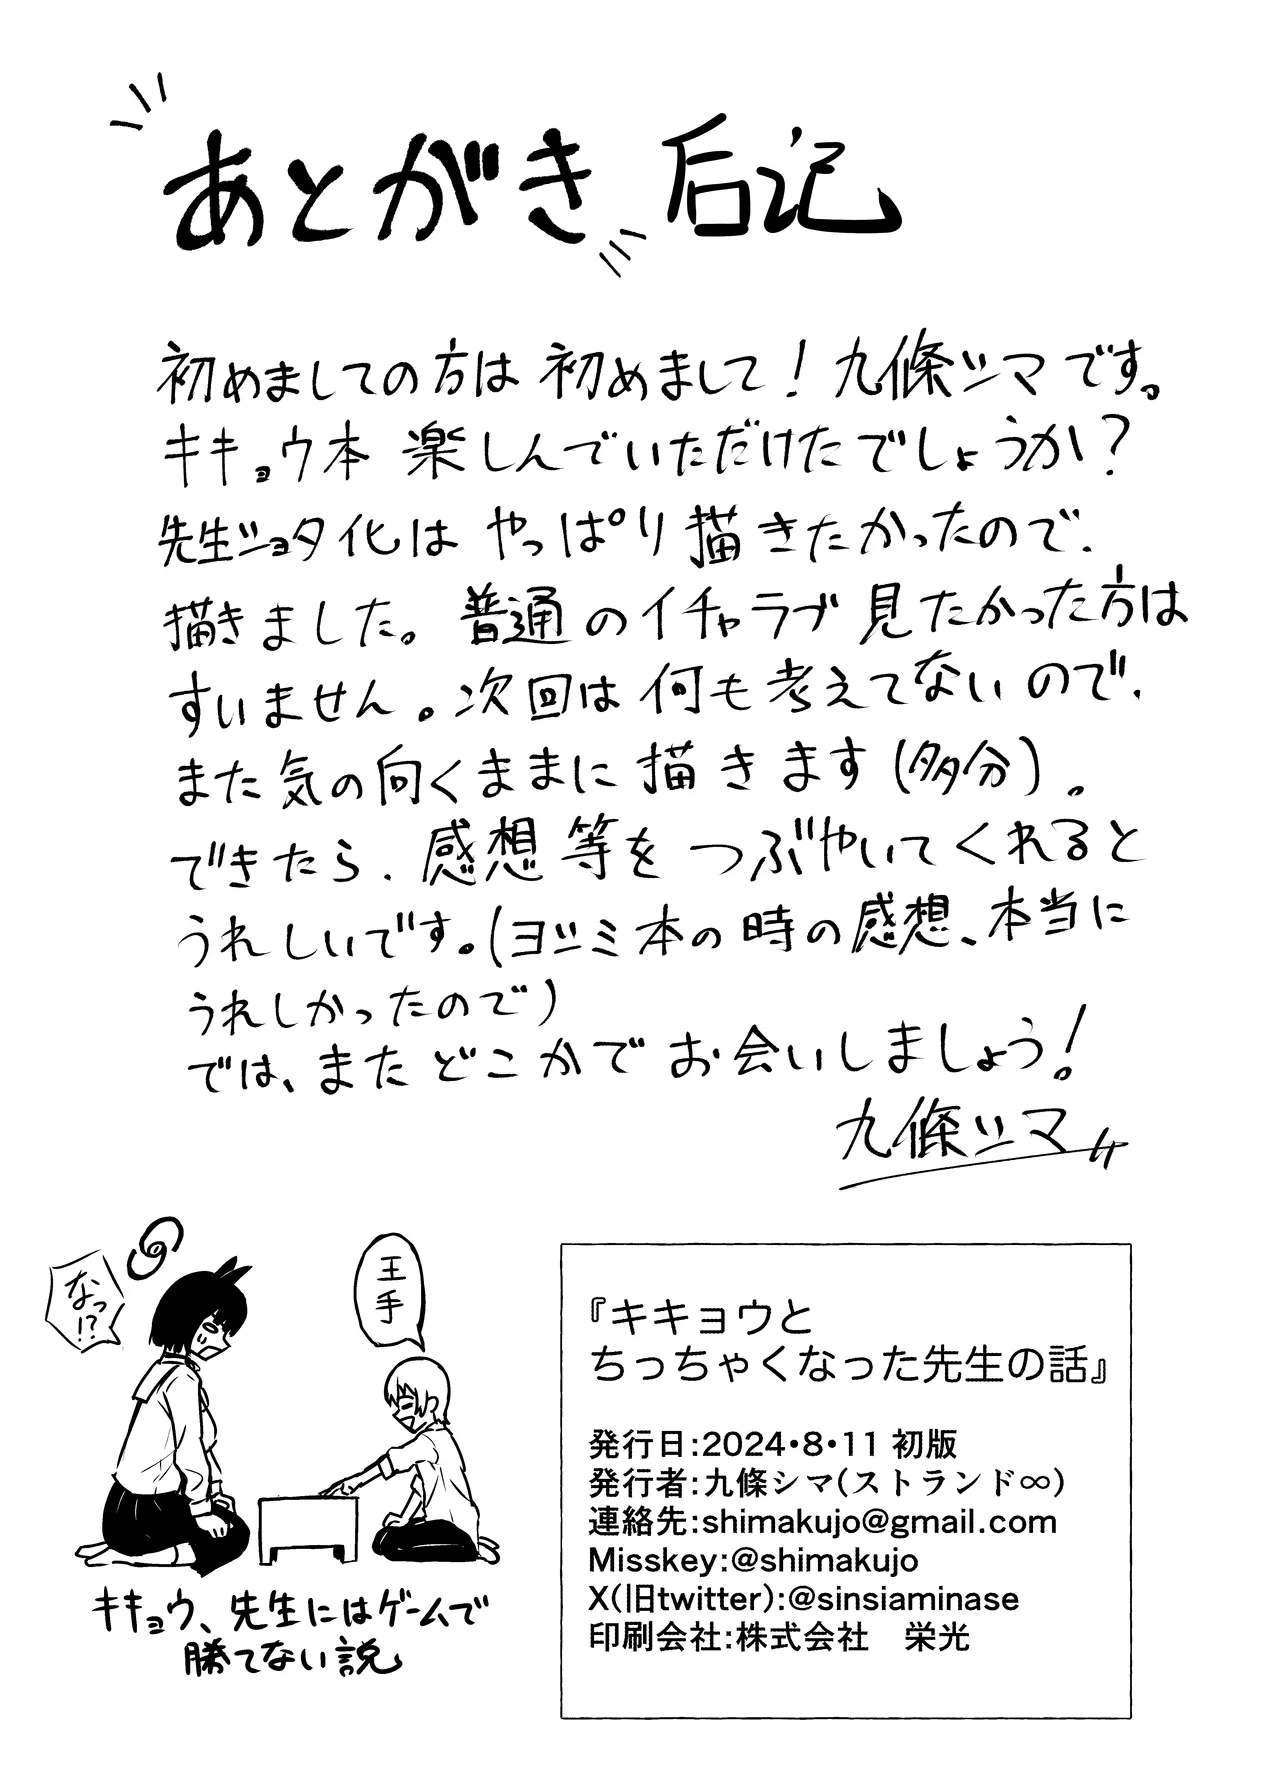 あとがき 后记
初めましての方は 初めまして！九條シマです。
キキョウ本 楽しんでいただけたでしょうか？
先生ショタ化は やっぱり描きたかったので、
描きました。普通のイチャラブ見たかった方は
すいません。次回は何も考えてないので、
また気の向くままに描きます(多分)。
できたら、感想等をつぶやいてくれると
うれしいです。(ヨツミ本の時の感想、本当に
うれしかったので)
では、またどこかでお会いしましょう！
九條シマ
なっ!?
王手
キキョウ、先生にはゲームで
勝てない説
『キキョウと
ちっちゃくなった先生の話』
発行日:2024・8・11 初版
発行者:九條シマ(ストランド∞)
連絡先:shimakujo@gmail.com
Misskey:@shimakujo
X(旧twitter):@sinsiaminase
印刷会社:株式会社　栄光